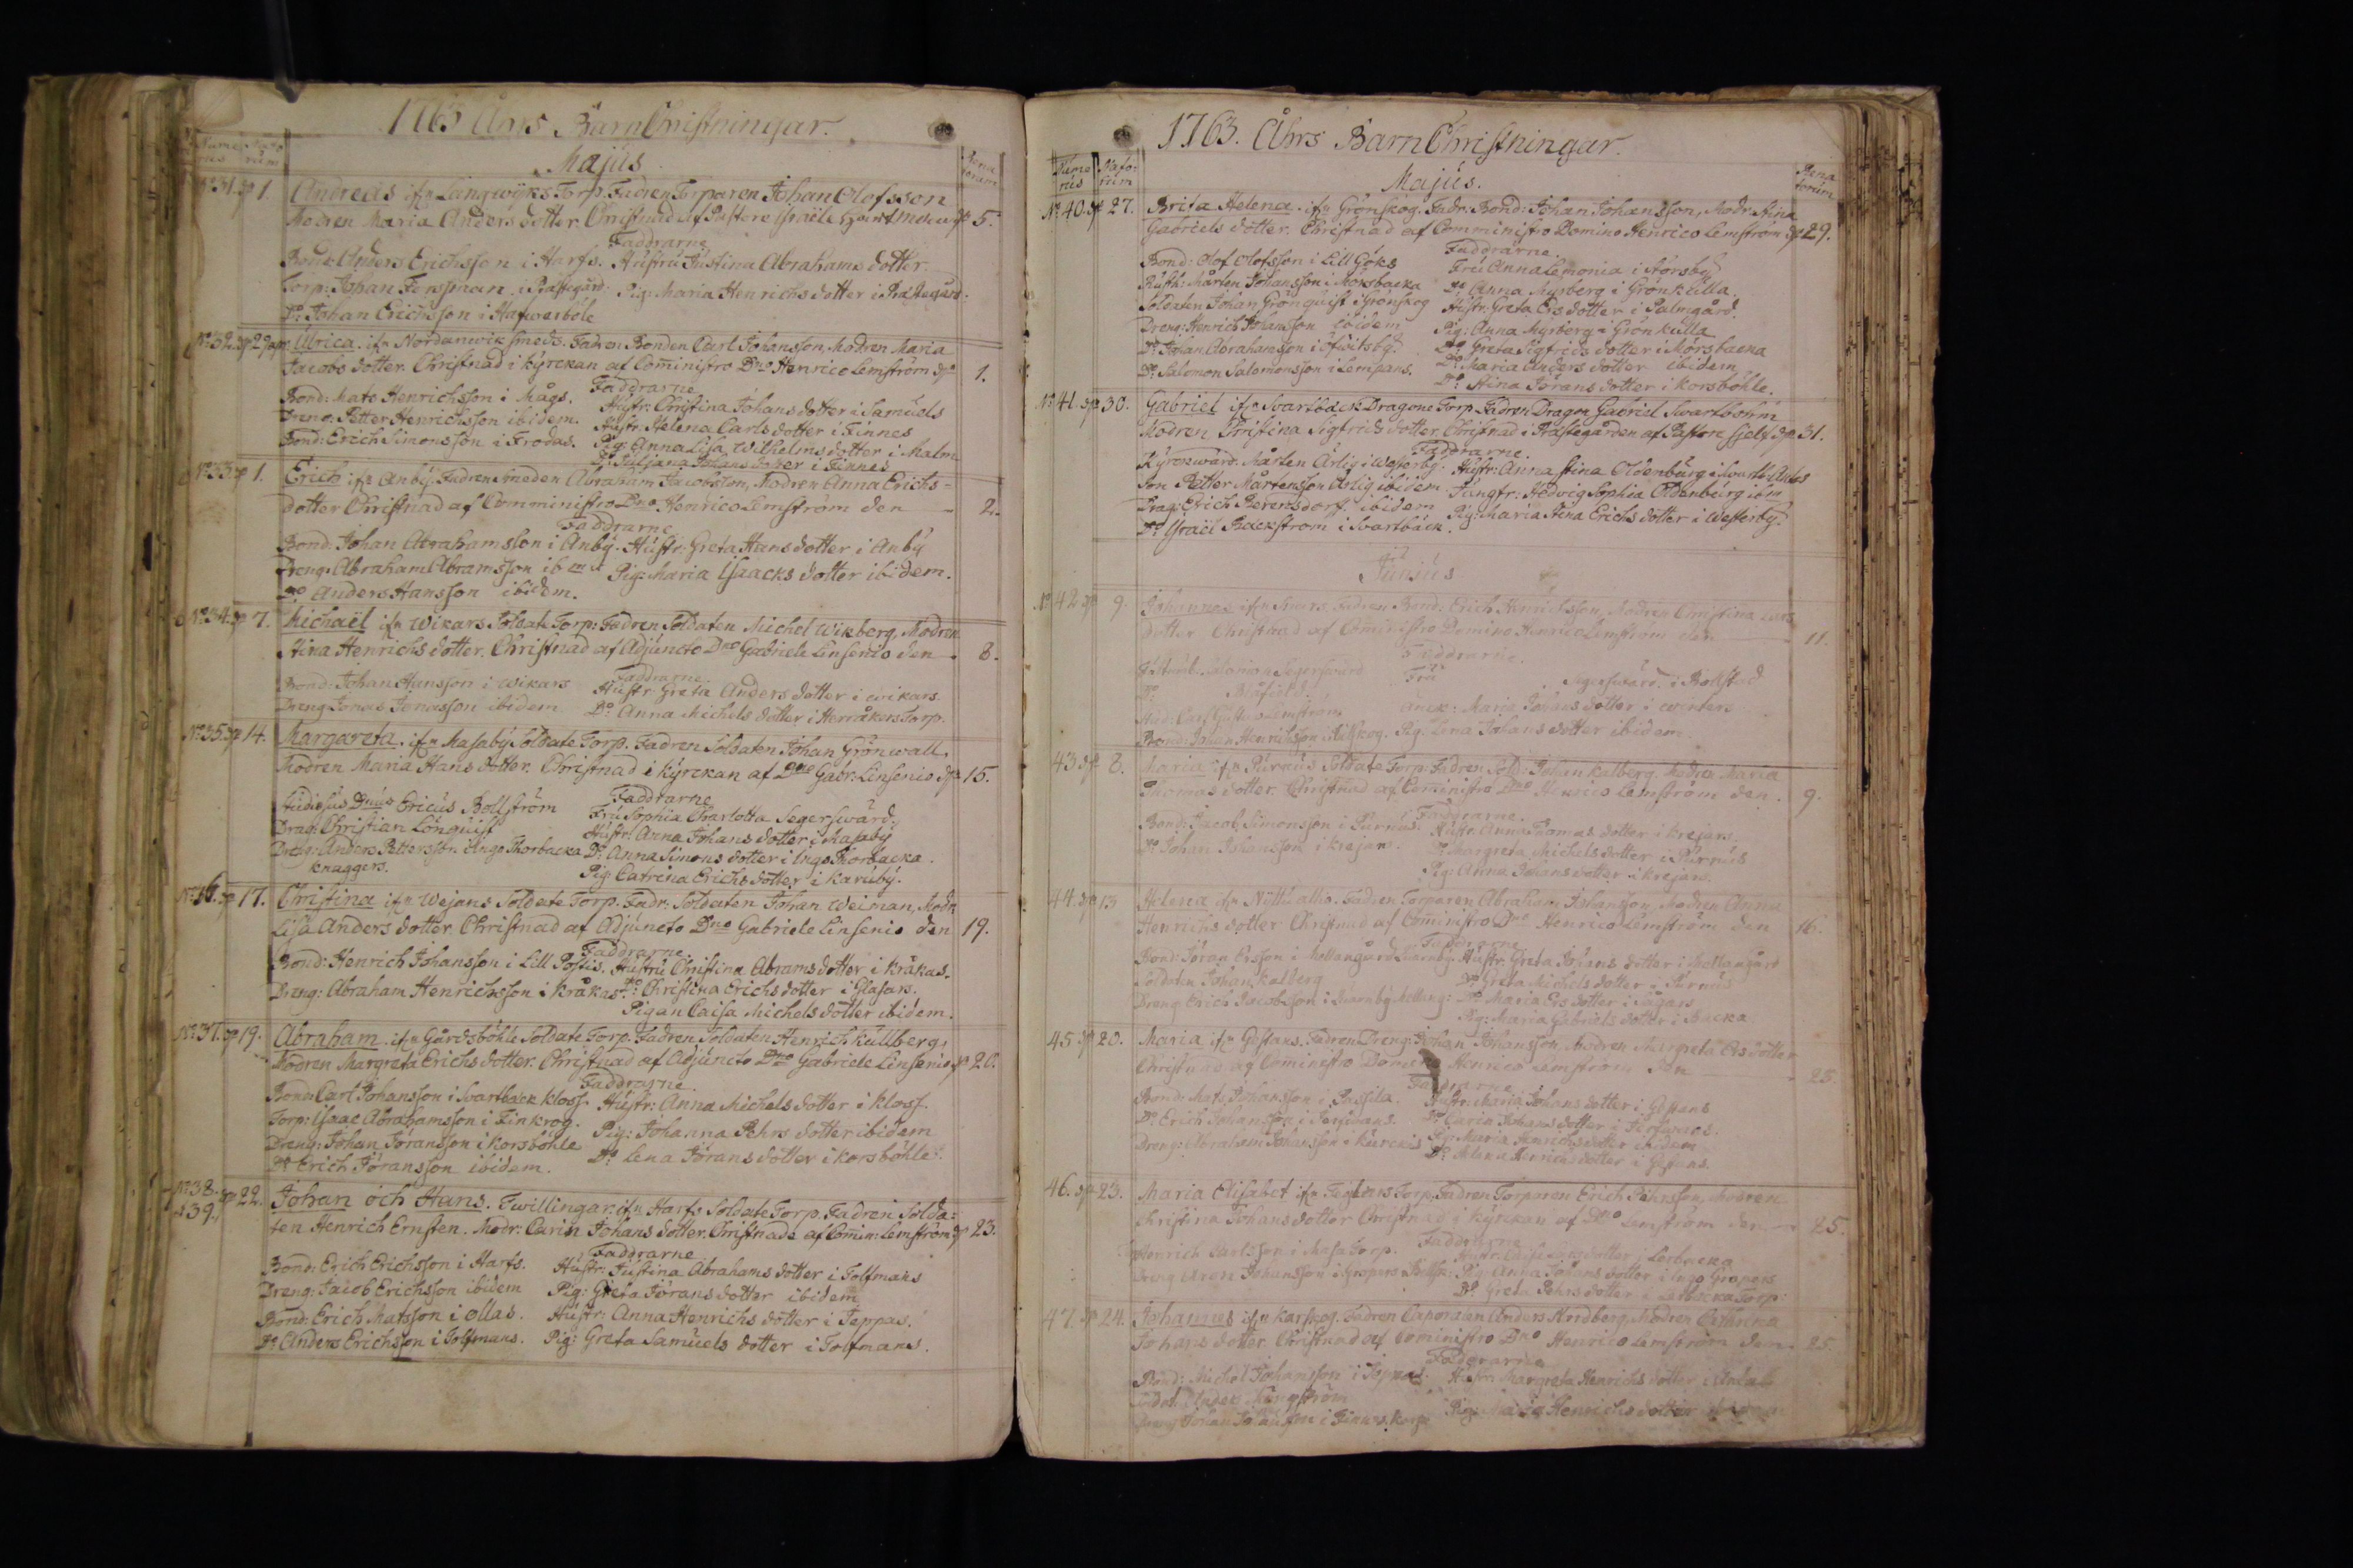 1763 Åhrs BarnChristningar.
Nume rus Nato rum Majus Rena torum
N° 31. 1. Andreas ifrn Långwijks Torp. Fadren Torparen Johan Olofsson
Modren Maria Anders dotter. Christnad af Pastore Israële 5.
Faddrarne
Bond: Anders Erichsson i Harfs. Hustru Justina Abrahams dotter.
Torp: Johan Finsman i Prästegård. Pig: Maria Henrichs dotter i Prästegård.
D° Johan Erichsson i Hafwerböle
N° 32. Ulrica. ifrn Nordanwik smeds. Fadren Bonden Carl Johansson, Modren Maria
Jacobs dotter. Christnad i kyrckan af Comministro Dno Henrico Lemström 1.
Faddrarne
Bond: Mats Henrichsson i Mågs. Hustr: Christina Johans dotter i Samuels
Dreng: Petter Henrichsson ibidem. Hustr: Helena Carls dotter i Finnes
Bond: Erich Simonsson i Frodas. Pig: Anna Lisa Wilhelms dotter i Malm
D° Juliana Johans dotter i Finnes
N° 33 1. Erich ifrn Anby. Fadren Smeden Abraham Jacobsson, Modren Anna Erichs-
dotter Christnad af Comministro Dno Henrico Lemström den 2.
Faddrarne
Bond: Johan Abrahamsson i Anby. Hustr: Greta Hans dotter i Anby
Dreng: Abraham Abramsson ibm Pig: Maria Isaacks dotter ibidem.
D° Anders Hansson ibidem.
N° 34. 7. Michaël ifrn Wikars Soldate Torp: Fadren Soldaten Michel Wikberg, Modren
Stina Henrichs dotter. Christnad af Adjuncto Dno Gabriele Linsenio den 8.
Faddrarne
Bond: Johan Hansson i Wikars Hustr: Greta Anders dotter i wikars
Dreng Jonas Jonasson ibidem D° Anna Michels dotter i Herråkers Torp.
N° 35. 14. Margareta. ifrn Masaby Soldate Torp. Fadren Soldaten Johan Grönwall
Modren Maria Hans dotter. Christnad i kyrckan af Dno Gabr: Linsenio 15.
Faddrarne
Studiosus Dnus Ericus Bollström Fru Sophia Charlotta Segerswärd.
Drag: Christian Lönquist Hustr: Anna Johans dotter i Masaby
Dreng: Anders Pettersson i Inga Thorbacka D° Anna Simons dotter i Inga Thorbacka.
knaggers. Pig: Catrina Erichs dotter i karuby.
N° 36. 17. Christina ifrn Wejans Soldate Torp. Fadr: Soldaten Johan Weiman, Modr
Lisa Anders dotter. Christnad af Adjuncto Dno Gabriele Linsenio den 19.
Faddrarne
Bond: Henrich Johansson i Lill Postis. Hustru Christina Abrams dotter i kråkas.
Dreng: Abraham Henrichsson i kråkas. D° Christina Erichs dotter i Glasars.
Pigan Caisa Michels dotter ibidem.
N° 37. 19. Abraham. ifrn Gårdsböhle Soldate Torp. Fadren Soldaten Henrich Kullberg,
Modren Margreta Erichs dotter. Christnad af Adjuncto Dno Gabriele Linsenio 20.
Faddrarne.
Bond: Carl Johansson i Svartback kloss. Hustr: Anna Michels dotter i kloss.
Torp: Isaac Abrahamsson i Finkrog. Pig: Johanna Pehrs dotter ibidem
Dreng: Johan Jöransson i korsböhle D° Lena Jörans dotter i korsböhle.
D° Erich Jöransson ibidem.
N° 38. & 39. 22. Johan och Hans. Twillingar ifrn Harfs Soldate Torp. Fadren Solda=
ten Henrich Ernsten. Modr: Carin Johans dotter. Christnade af Comin: Lemström 23.
Faddrarne
Bond: Erich Erichsson i Harfs. Hustr: Justina Abrahams dotter i Tolfmans
Dreng: Jacob Erichsson ibidem Pig: Greta Jörans dotter ibidem
Bond: Erich Matsson i Ollas. Hustr: Anna Henrichs dotter i Teppas.
D° Anders Erichsson i Tolfmans. Pig: Greta Samuels dotter i Tolfmans.
1763. Åhrs BarnChristningar.
Nume rus Nato: rum Majus. Rena torum
N° 40. 27. Brita Helena. ifrn Grönskog. Fadr: Bond: Johan Johansson, Modr: Stina
Gabriels dotter. Christnad af Comministro Domino Henrico Lemström 29.
Faddrarne.
Bond: Olof Olofsson i Lill Göks Fru Anna Lemonia i Storsby
Rusth: Mårten Johansson i Mörsbacka D° Anna Myrberg i Grönkulla.
Soldaten Johan Grönquist i Grönskog Hustr: Greta Ers dotter i Palmgård.
Dreng: Henrich Johansson ibidem Pig: Anna Myrberg i Grönkulla
D° Johan Abrahamsson i D° Greta Sigfrids dotter i Mörsbacka
D° Salomon Salomonsson i Lempans. D° Maria Anders dotter ibidem
D° Stina Jörans dotter i korsböhle.
N° 41. 30. Gabriel ifrn Svartbäck Dragone Torp. Fadren Dragon Gabriel Swartbohm
Modren Christina Sigfrids dotter. Christnad i Prästegården af Pastore sjelf 31.
Faddrarne.
Kyrckward: Mårten Ärlig i Westerby. Hustr: Anna Stina Oldenburg i
Son Petter Mårtensson Ärlig ibidem. Jungfr: Hedvig Sophia Oldenburg ibm
Drag: Erich Berensdorf ibidem Pig: Maria Stina Erichs dotter i Westerby.
D° Israël Backström i Svartbäck.
Junius
N° 42 9. Johannes ifrn Fadren Bond: Erich Henrichsson, Modren Christina Lars
dotter Christnad af Cominestro Domino Henrico Lemström den 11.
Faddrarne.
Salomon Segerswärd Fru Segerswärd i Bollstad
Stud: Carl Gustav Lemström Maria Johans dotter i winters
Bond: Johan Henrichsson i Pig: Lena Johans dotter ibidem
43 8. Maria ifrn Purnus Soldate Torp. Fadren Sold: Johan Kalberg. Modra Maria
Thomas dotter. Christnad af Cominestro Dno Henrico Lemström den 9.
Faddrarne.
Bond: Jacob Simonsson i Purnus. Hustr: Anna Thomas dotter i krejars.
D° Johan Johansson i krejars. D° Margreta Michels dotter i Purnus
Pig: Anna Johans dotter i krejars.
44. 13 Helena ifrn Fadren Torparen Abraham Johansson, Modren Anna
Henrichs dotter Christnad af Cominestro Dno Henrico Lemström den 16.
Faddrarne
Bond: Jöran Ersson i Mellangård Hustr: Greta Johans dotter i Mellangård
Soldaten Johan Kalberg D° Greta Michels dotter i Purnus
Dreng Erich Jacobsson i D° Maria Ers dotter i Sågars
Pig: Maria Gabriels dotter i Backa
45. 20. Maria ifrn Göstans. Fadren Dreng: Johan Johansson, Modren Margreta Ers dotter
Christnad af Cominestro Domino Henrico Lemström den 25.
Faddrarne
Bond: Mats Johansson i Passila. Hustr: Maria Johans dotter i Göstans
D° Erich Johansson i D° Carin Johans dotter i
Dreng: Abraham Johansson i Pig: Maria Henrichs dotter ibidem
D° Helena Henrichs dotter i Göstans.
46. 23. Maria Elisabet ifrn Teglars Torp. Fadren Torparen Erich Pehrsson, Modren
Christina Johans dotter Christnad i kyrckan af Dno Lemström den 25.
Faddrarne
Henrich Carlsson i Masa Torp. Hustr: dotter i Lerbacka
Dreng Aron Johansson i Gropars Pig: Anna Johans dotter i Inga Gropars
D° Greta Pehrs dotter i Lerbacka Torp:
47. 24. Johannes ifrn karskog. Fadren Caporalen Anders Nordberg, Modren Cathrina
Johans dotter. Christnad af Cominestro Dno Henrico Lemström den 25.
Faddrarne
Bond: Michel Johansson i Hustr: Margreta Henrichs dotter i
Soldat: Anders
Dreng Johan Johansson i Finnas. Pig: Maria Henrichs dotter